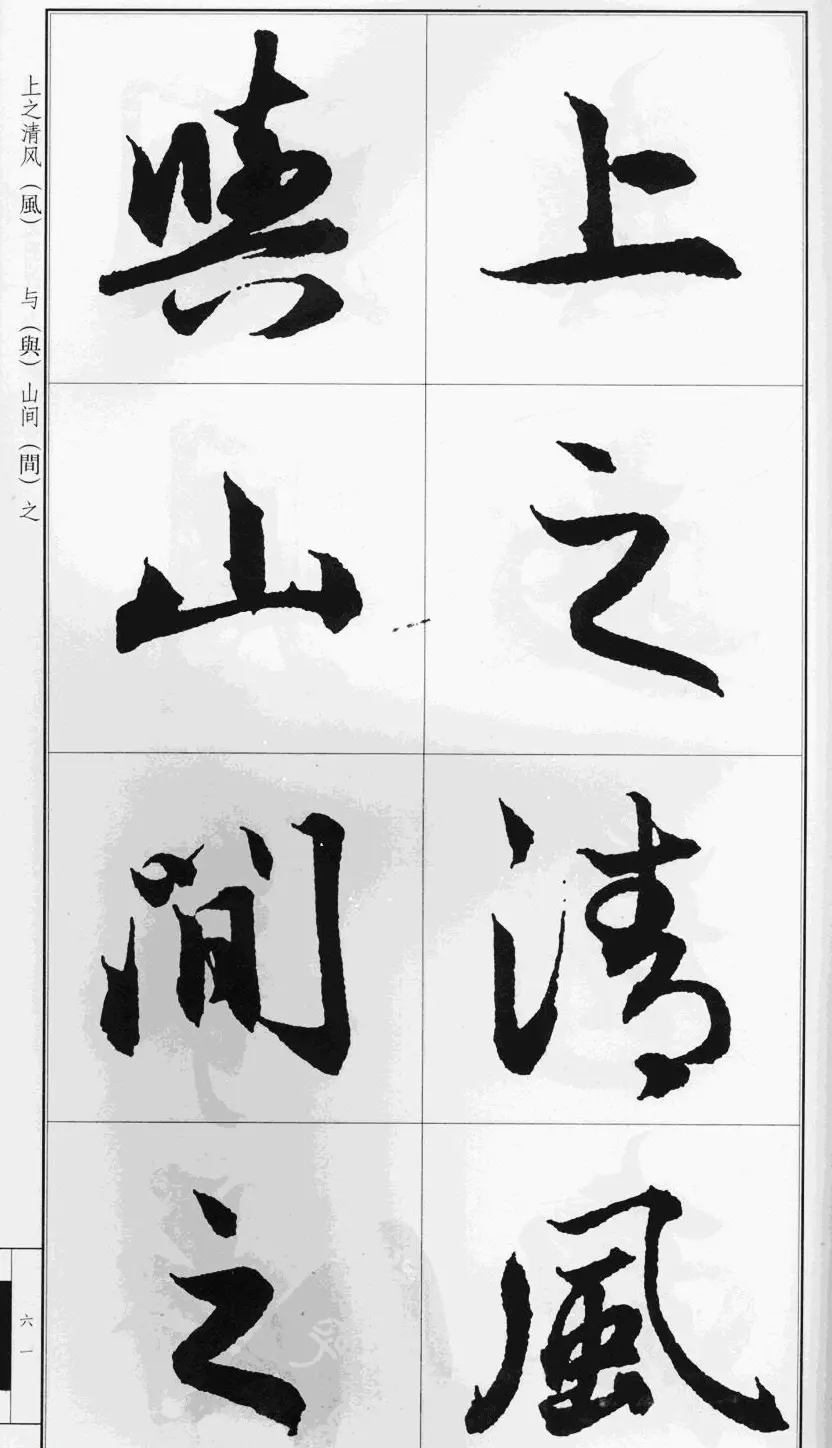 上之清風
與山間之
上之清风（風）与（與）山间（間）之
六一